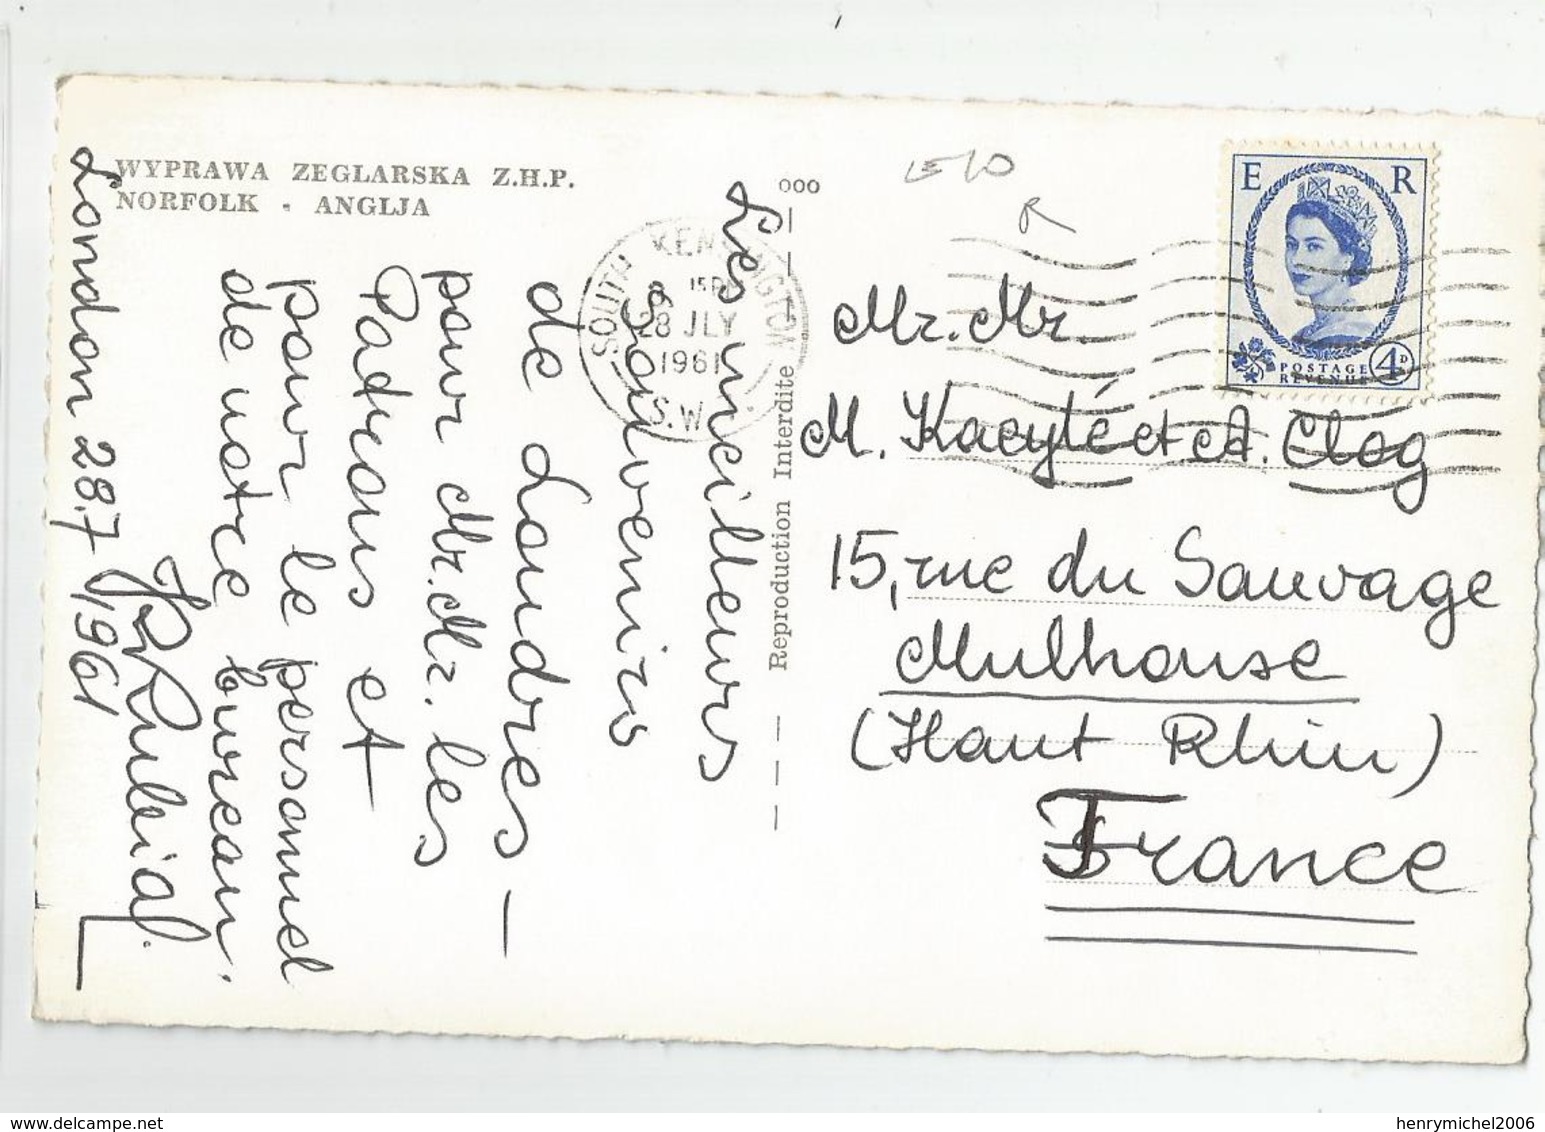 WYPRAWA ZEGLARSKA Z.H.P.
NORFOLK - ANGLJA
Les meilleurs
Souvenirs
de Londres —
pour Mr. Mr. les
Patrons et
pour le personnel
de notre bureau.
London 28.7 1961
000
Reproduction Interdite
SOUTH KENSINGTON
15 P
28 JLY
1961
S.W.
E R
POSTAGE
REVENUE
4D
R
Mr. Mr.
M. Kacyté et A. Cleg
15, rue du Sauvage
Mulhouse
(Haut Rhin)
France
henrymichel2006